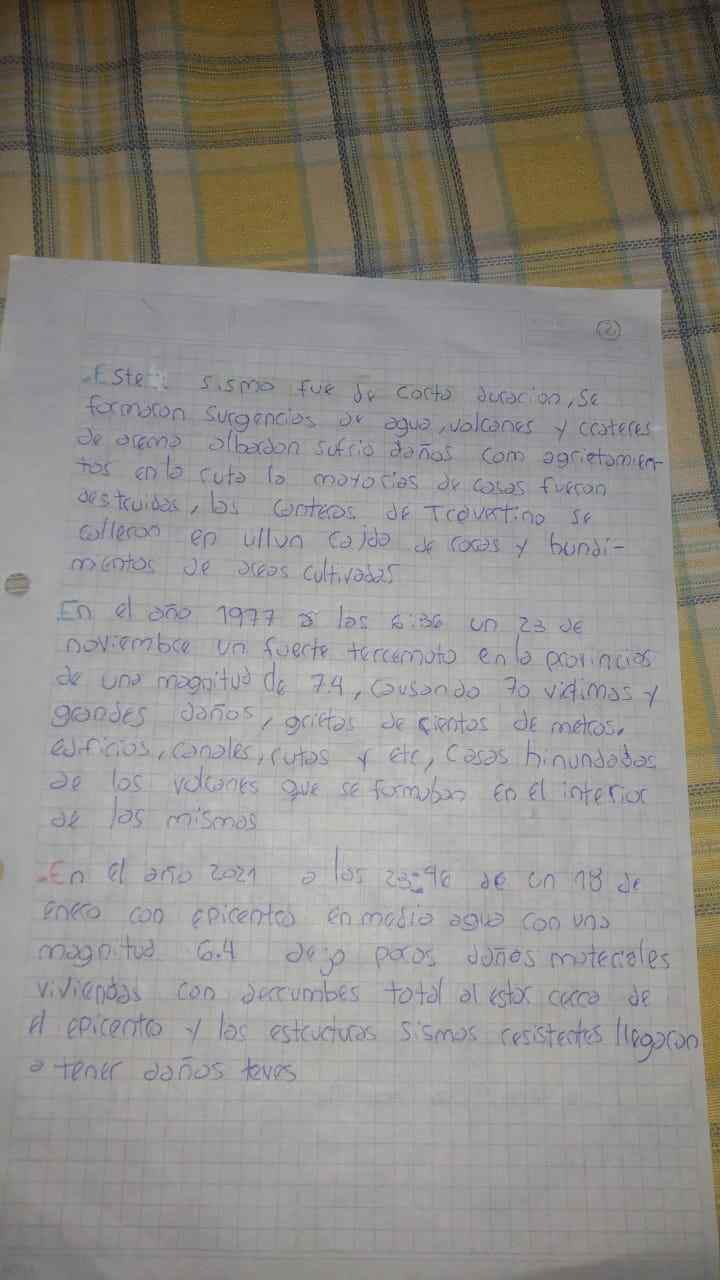 2
.Este sismo fue de corta duracion, se
formaron surgencias de agua, volcanes y crateres
de arena albardon sufrio daños com agrietamien-
tos en la ruta la mayorias de casas fueron
destruidas, las canteras de Travertino se
calleron en ullun caida de rocas y hundi-
mientos de areas cultivadas
.En el año 1977 a las 6:36 un 23 de
noviembre un fuerte terremoto en la provincias
de una magnitud de 7.4, causando 70 victimas y
grandes daños, grietas de cientos de metros,
edificios, canales, rutas y etc, casas hinundadas
de los volcanes que se formaban en el interior
de las mismas
.En el año 2021 a las 23:46 de un 18 de
enero con epicentro en media agua con una
magnitud 6.4 dejo pocos daños materiales
viviendas con derrumbes total al estar cerca de
el epicentro y las estructuras sismos resistentes llegaron
a tener daños leves